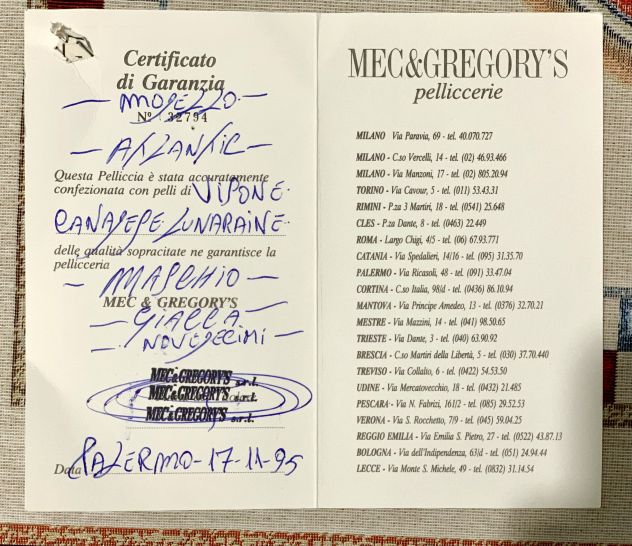 Certificato
di Garanzia
— MODELLO —
N° 32794
— ATLANTIC —
Questa Pelliccia è stata accuratamente
confezionata con pelli di VISONE
CANADESE LUNARAINE
delle qualità sopracitate ne garantisce la
pellicceria
— MASCHIO —
MEC & GREGORY'S
— GIACCA —
— NOVEDECIMI —
MEC&GREGORY'S s.r.l.
MEC&GREGORY'S
MEC&GREGORY'S s.r.l.
Data PALERMO-17-11-95
MEC&GREGORY'S
pelliccerie
MILANO Via Paravia, 69 - tel. 40.070.727
MILANO - C.so Vercelli, 14 - tel. (02) 46.93.466
MILANO - Via Manzoni, 17 - tel. (02) 805.20.94
TORINO - Via Cavour, 5 - tel. (011) 53.43.31
RIMINI - P.za 3 Martiri, 18 - tel. (0541) 25.648
CLES - P.za Dante, 8 - tel. (0463) 22.449
ROMA - Largo Chigi, 4/5 - tel. (06) 67.93.771
CATANIA - Via Spedalieri, 14/16 - tel. (095) 31.35.70
PALERMO - Via Ricasoli, 48 - tel. (091) 33.47.04
CORTINA - C.so Italia, 98/d - tel. (0436) 86.10.94
MANTOVA - Via Principe Amedeo, 13 - tel. (0376) 32.70.21
MESTRE - Via Mazzini, 14 - tel. (041) 98.50.65
TRIESTE - Via Dante, 3 - tel. (040) 63.90.92
BRESCIA - C.so Martiri della Libertà, 5 - tel. (030) 37.70.440
TREVISO - Via Collalto, 6 - tel. (0422) 54.53.50
UDINE - Via Mercatovecchio, 18 - tel. (0432) 21.485
PESCARA - Via N. Fabrizi, 161/2 - tel. (085) 29.52.53
VERONA - Via S. Rocchetto, 7/9 - tel. (045) 59.04.25
REGGIO EMILIA - Via Emilia S. Pietro, 27 - tel. (0522) 43.87.13
BOLOGNA - Via dell'Indipendenza, 63/d - tel. (051) 24.94.44
LECCE - Via Monte S. Michele, 49 - tel. (0832) 31.14.54